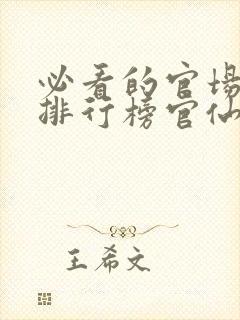 必看的官場
排行榜官仙
王希文